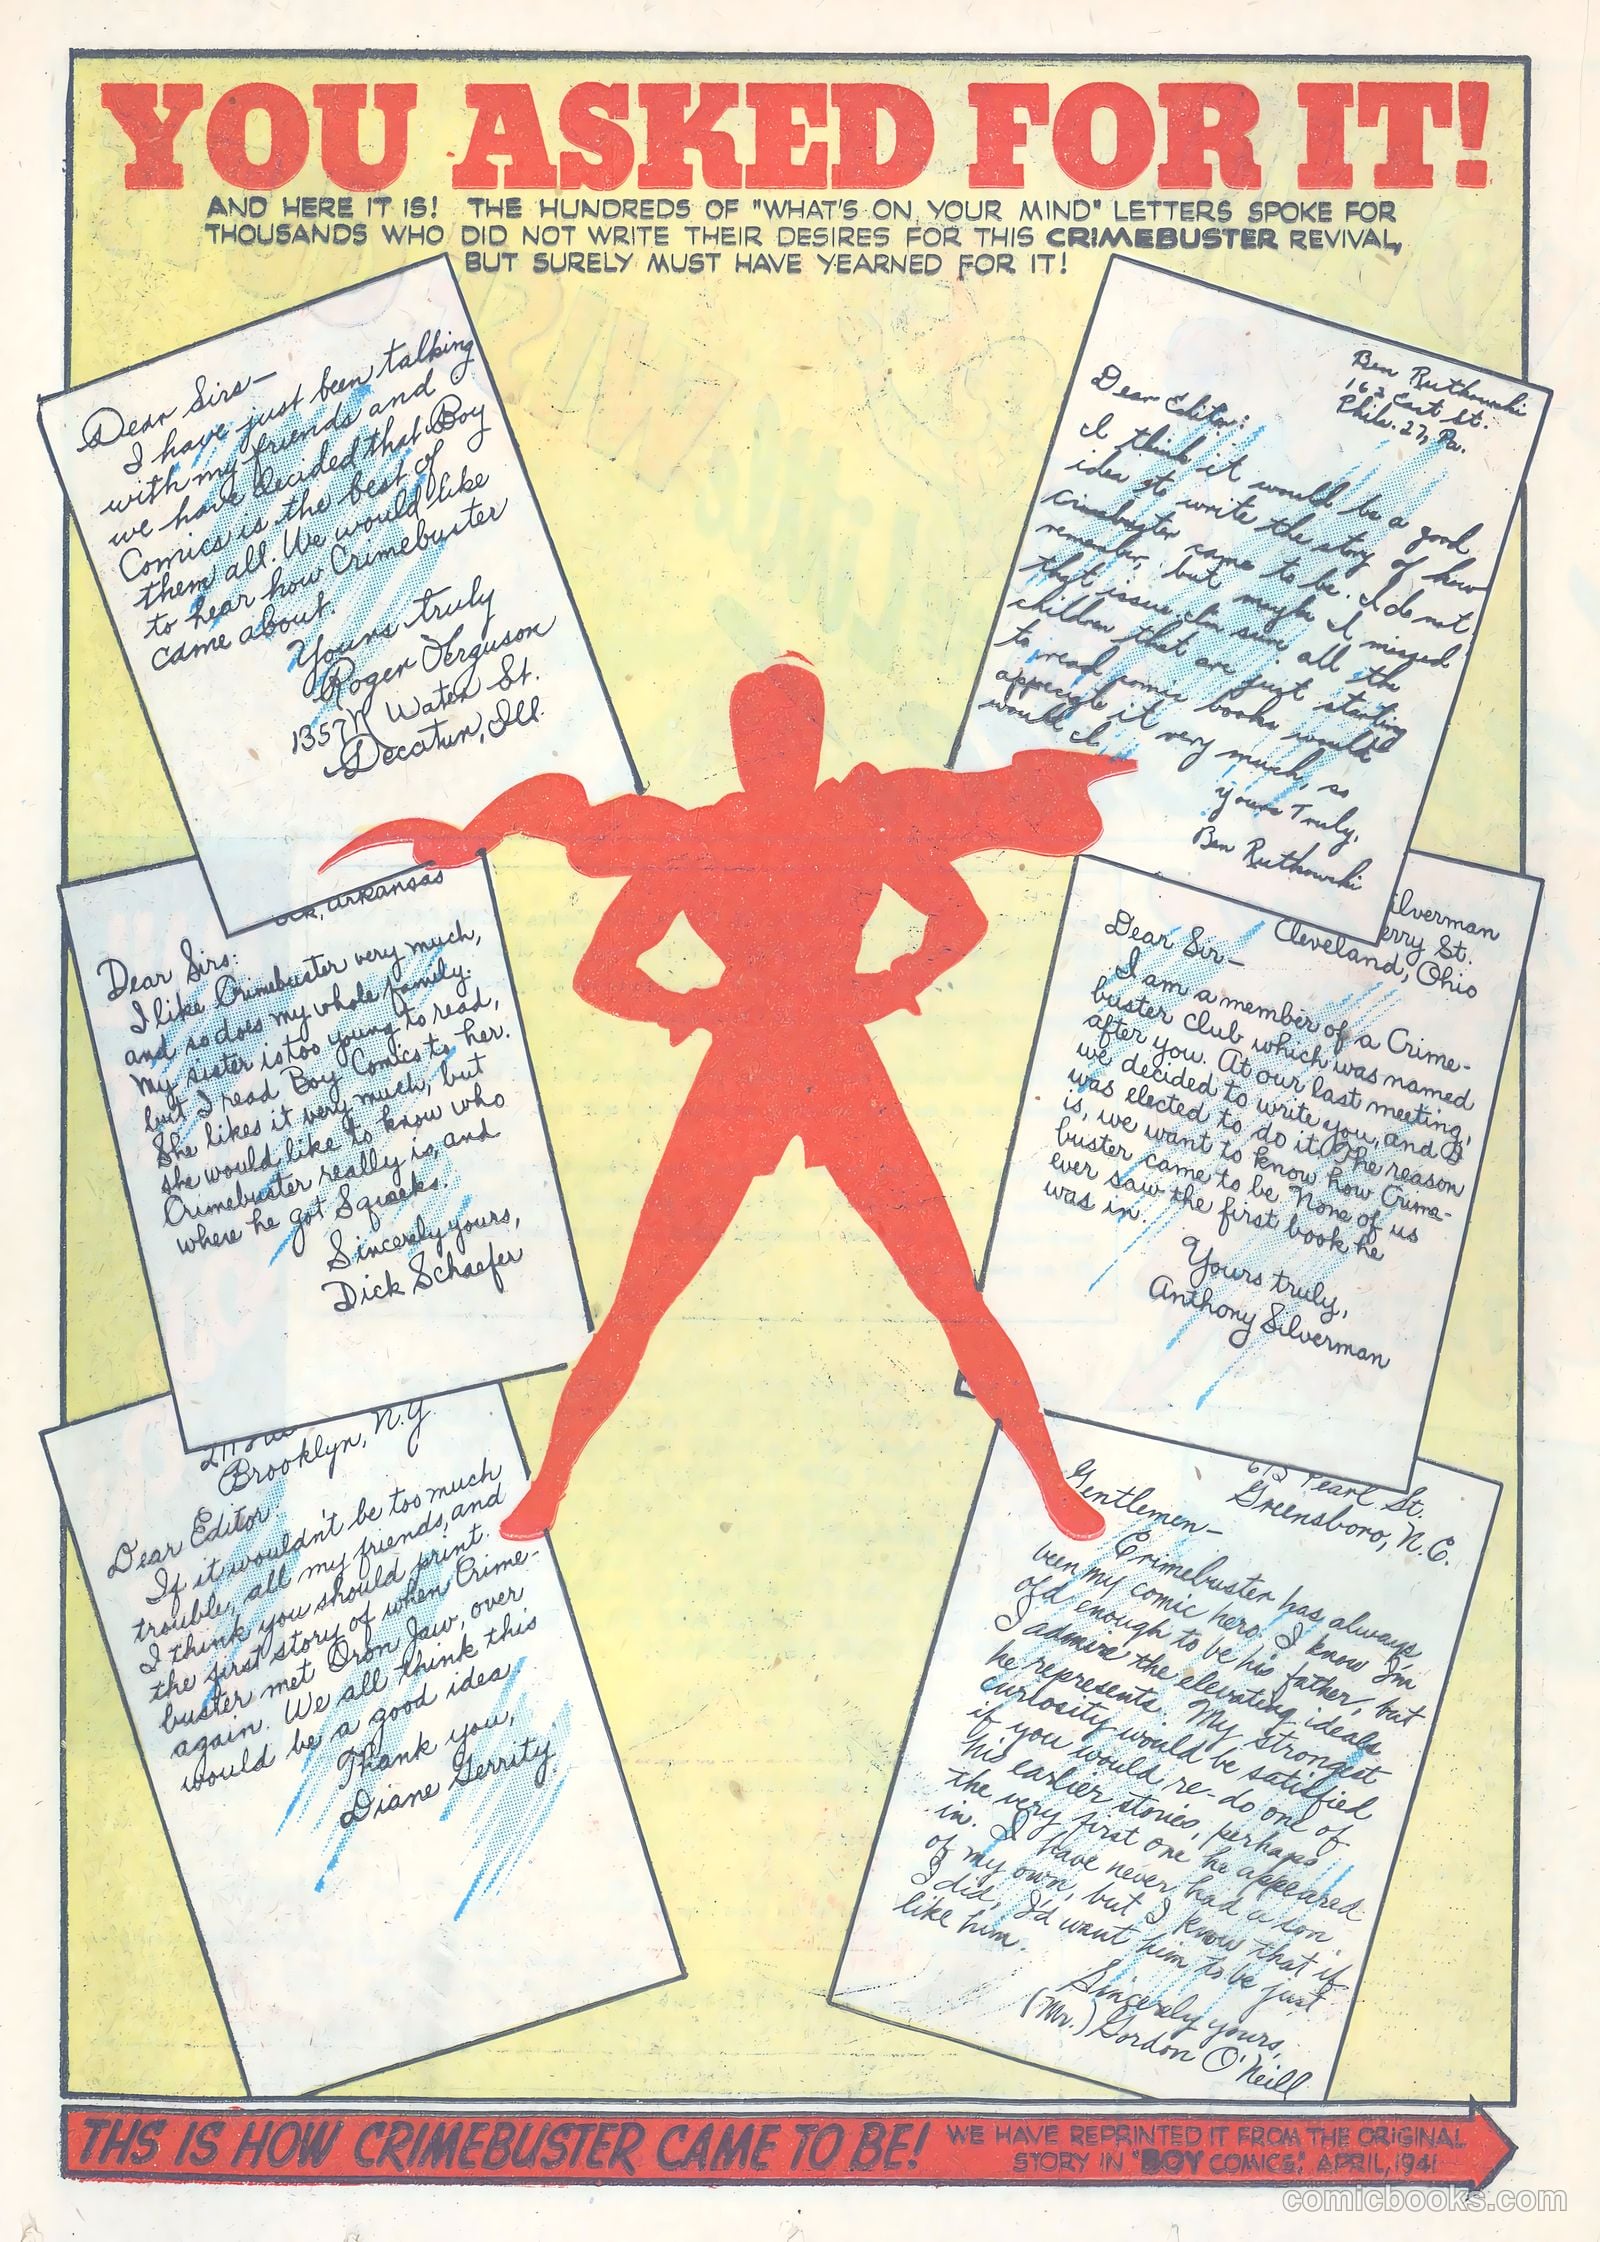 YOU ASKED FOR IT!
AND HERE IT IS! THE HUNDREDS OF "WHAT'S ON YOUR MIND" LETTERS SPOKE FOR
THOUSANDS WHO DID NOT WRITE THEIR DESIRES FOR THIS CRIMEBUSTER REVIVAL,
BUT SURELY MUST HAVE YEARNED FOR IT!
Dear Sirs—
I have just been talking
with my friends and
we have decided that Boy
Comics is the best of
them all. We would like
to hear how Crimebuster
came about.
Yours truly
Roger Ferguson
1357 N Water St.
Decatur, Ill.
Ben Rutkowski
162 East St.
Phila. 27, Pa.
Dear Editor:
I think it would be a good
idea to write the story of how
Crimebuster came to be. I do not
remember, but maybe I missed
that issue. I'm sure all the
children that are just starting
to read comic books would
appreciate it very much, so
would I.
Yours Truly,
Ben Rutkowski
ock, Arkansas
Dear Sirs:
I like Crimebuster very much,
and so does my whole family.
My sister is too young to read,
but I read Boy Comics to her.
She likes it very much, but
she would like to know who
Crimebuster really is, and
where he got Squeeks.
Sincerely yours,
Dick Schaefer
ilverman
erry St.
Cleveland, Ohio
Dear Sir—
I am a member of a Crime-
buster Club which was named
after you. At our last meeting,
we decided to write you, and I
was elected to do it. The reason
is, we want to know how Crime-
buster came to be. None of us
ever saw the first book he
was in.
Yours truly,
Anthony Silverman
Brooklyn, N.Y.
Dear Editor:
If it wouldn't be too much
trouble, all my friends, and
I think you should print
the first story of when Crime-
buster met Iron Jaw, over
again. We all think this
would be a good idea
Thank you,
Diane Gerrity
613 Pearl St.
Greensboro, N.C.
Gentlemen—
Crimebuster has always
been my comic hero. I know I'm
old enough to be his father, but
I admire the elevating ideals
he represents. My strongest
curiosity would be satisfied
if you would re-do one of
his earlier stories, perhaps
the very first one he appeared
in. I have never had a son
of my own, but I know that if
I did, I'd want him to be just
like him.
Sincerely yours,
(Mr.) Gordon O'Neill
THS IS HOW CRIMEBUSTER CAME TO BE!
WE HAVE REPRINTED IT FROM THE ORIGINAL
STORY IN "BOY COMICS", APRIL, 1941
comicbooks.com